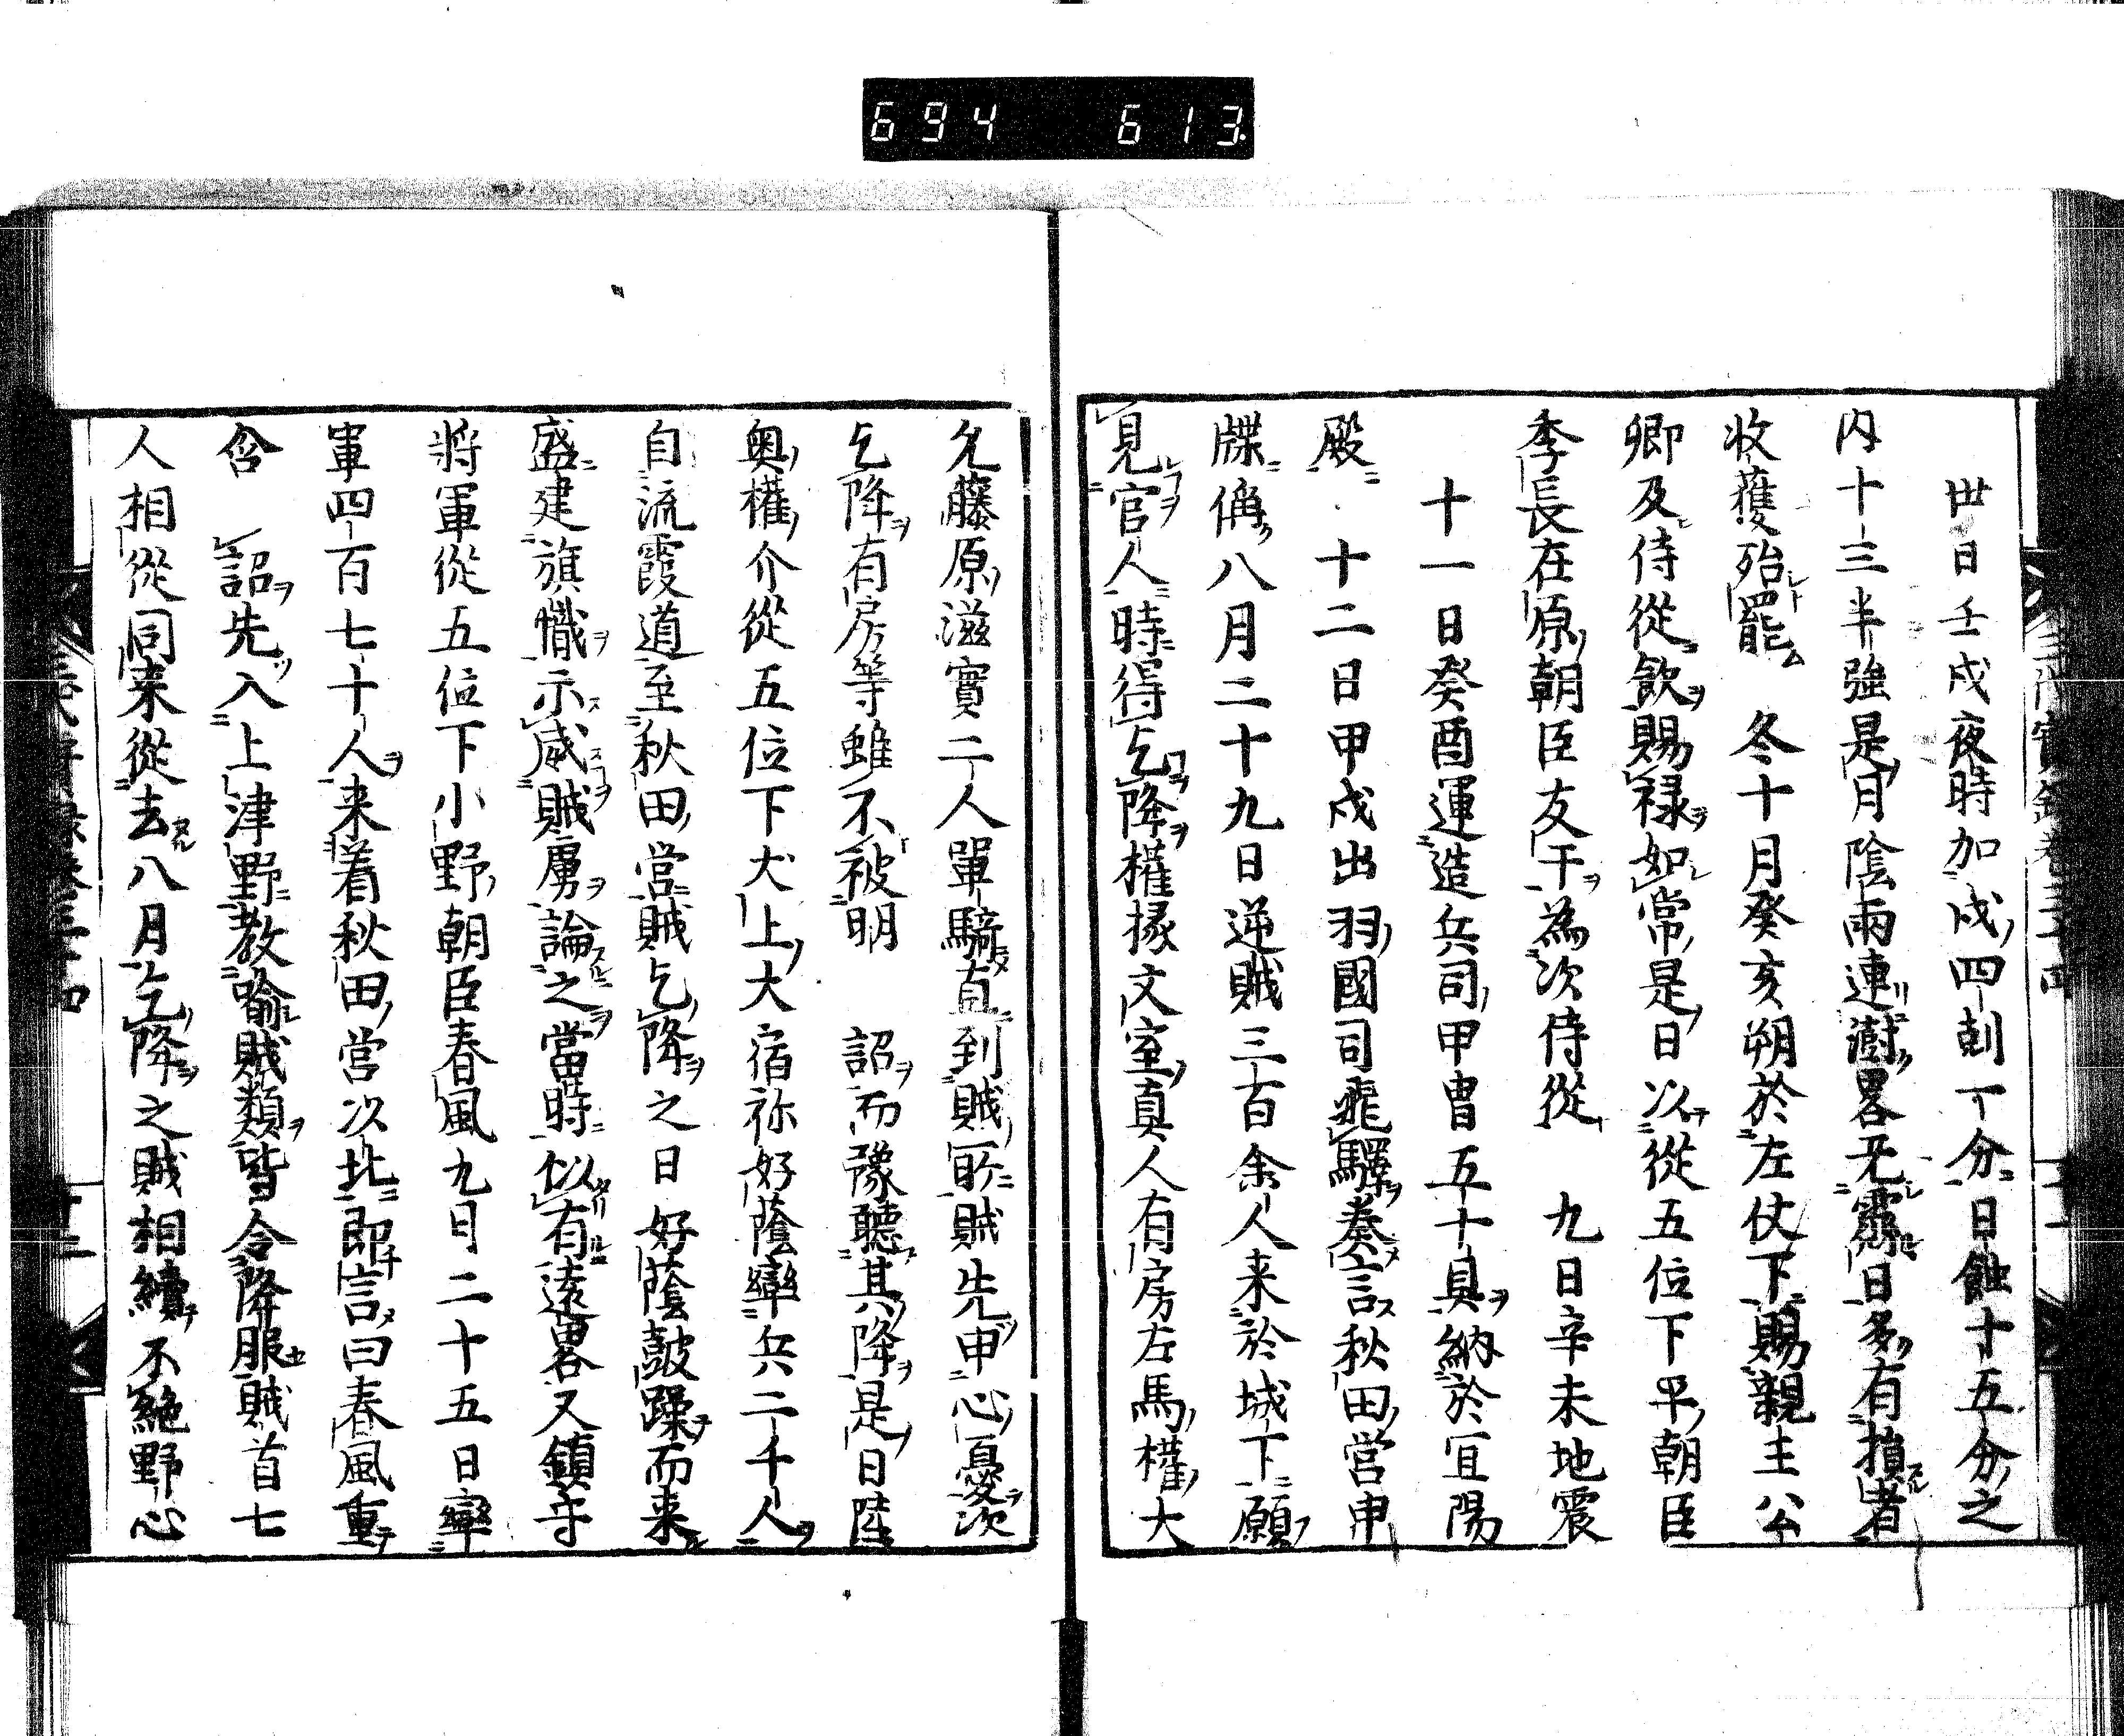 694 613
丗日壬戌夜時加戌四剋一分日蝕十五分之
内十三半強是月陰雨連澍畧无霽日多有損者
收獲殆罷 冬十月癸亥朔於左仗下賜親王公
卿及侍從飲賜禄如常是日以從五位下平朝臣
季長在原朝臣友于為次侍從 九日辛未地震
十一日癸酉運造兵司甲冑五十具納於宜陽
殿 十二日甲戌出羽國司飛驛奏言秋田営申
牒偁八月二十九日逆賊三百余人来於城下願
見官人時得乞降權掾文室真人有房左馬權大
允藤原滋實二人單騎直到賊所賊先申心憂次
乞降有房等雖不被明 詔而豫聽其降是日陸
奥權介從五位下大上大宿祢好蔭率兵二千人
自流霞道至秋田営賊乞降之日好蔭鼓躁而来
盛建旗幟示威賊虜論之當時似有遠畧又鎮守
将軍從五位下小野朝臣春風九月二十五日率
軍四百七十人来着秋田営以北即言曰春風重
含 詔先入上津野教喻賊類皆令降服賊首七
人相從同来從去八月乞降之賊相續不絶野心